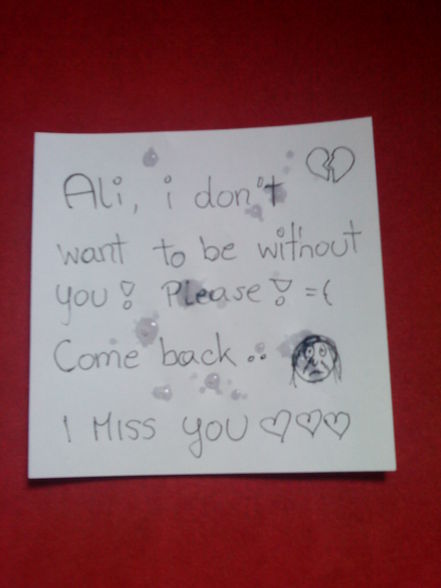 Ali, i don't
want to be without
you! Please! =(
Come back..
I MISS YOU